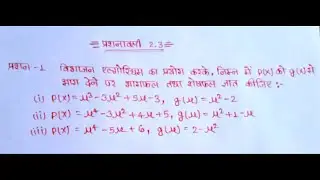 = प्रश्नावली 2.3 =
प्रश्न-1 विभाजन एल्गोरिथ्म का प्रयोग करके, निम्न में P(x) को g(x) से
भाग देने पर भागफल तथा शेषफल ज्ञात कीजिए :-
(i) P(x) = x³-3x²+5x-3, g(x) = x²-2
(ii) P(x) = x⁴-3x²+4x+5, g(x) = x²+1-x
(iii) P(x) = x⁴-5x+6, g(x) = 2-x²